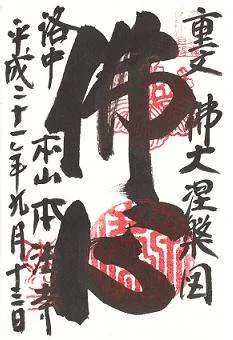 重文 佛大涅槃図
佛心
洛中 本山本法寺
平成二十一年九月十三日